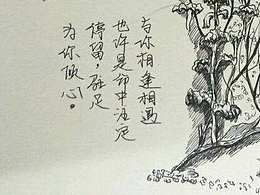 与你相逢相遇
也许是命中注定
停留，驻足
为你倾心。